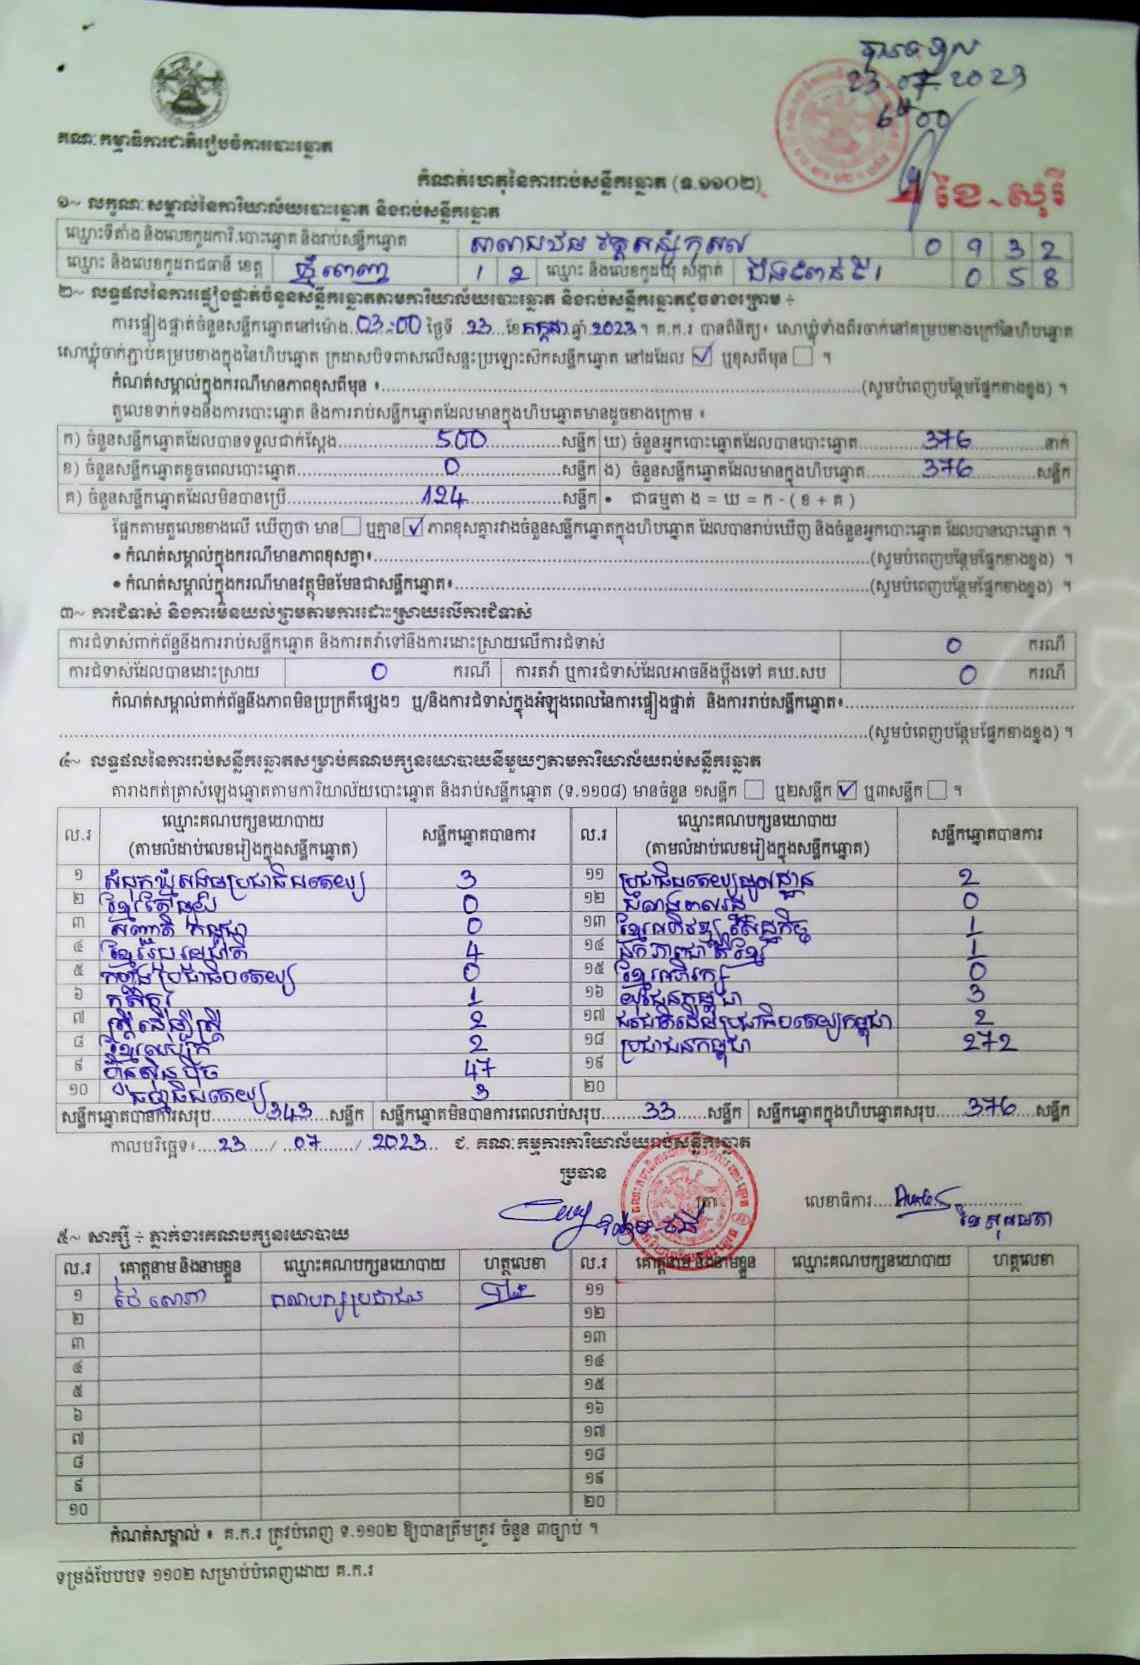 បានទទួល
23.07.2023
គណៈកម្មាធិការជាតិរៀបចំការបោះឆ្នោត
កំណត់ហេតុនៃការរាប់សន្លឹកឆ្នោត (ទ.១១០២)
ខៃ.សុរី
១~ លក្ខណៈសម្គាល់នៃការិយាល័យបោះឆ្នោត និងរាប់សន្លឹកឆ្នោត
ឈ្មោះទីតាំង និងលេខកូដការិ.បោះឆ្នោត និងរាប់សន្លឹកឆ្នោត 0 9 3 2
ឈ្មោះ និងលេខកូដរាជធានី ខេត្ត ភ្នំពេញ 1 2 ឈ្មោះ និងលេខកូដឃុំ សង្កាត់ 0 5 8
២~ លទ្ធផលនៃការផ្ទៀងផ្ទាត់ចំនួនសន្លឹកឆ្នោតតាមការិយាល័យបោះឆ្នោត និងរាប់សន្លឹកឆ្នោតដូចខាងក្រោម ÷
ការផ្ទៀងផ្ទាត់ចំនួនសន្លឹកឆ្នោតនៅម៉ោង 03:00 ថ្ងៃទី 23 ខែ កក្កដា ឆ្នាំ 2023 ។ គ.ក.រ បានពិនិត្យ៖ សោឃ្លុំទាំងពីរចាក់នៅគម្របខាងក្រៅនៃហិបឆ្នោត
សោឃ្លុំចាក់ភ្ជាប់គម្របខាងក្នុងនៃហិបឆ្នោត ក្រដាសបិទពាសលើសន្ទះប្រឡោះសិកសន្លឹកឆ្នោត នៅដដែល ☑ ឬខុសពីមុន ☐ ។
កំណត់សម្គាល់ក្នុងករណីមានភាពខុសពីមុន ៖ (សូមបំពេញបន្ថែមផ្នែកខាងខ្នង) ។
តួលេខទាក់ទងនឹងការបោះឆ្នោត និងការរាប់សន្លឹកឆ្នោតដែលមានក្នុងហិបឆ្នោតមានដូចខាងក្រោម ៖
ក) ចំនួនសន្លឹកឆ្នោតដែលបានទទួលជាក់ស្តែង 500 សន្លឹក ឃ) ចំនួនអ្នកបោះឆ្នោតដែលបានបោះឆ្នោត 376 នាក់
ខ) ចំនួនសន្លឹកឆ្នោតខូចពេលបោះឆ្នោត 0 សន្លឹក ង) ចំនួនសន្លឹកឆ្នោតដែលមានក្នុងហិបឆ្នោត 376 សន្លឹក
គ) ចំនួនសន្លឹកឆ្នោតដែលមិនបានប្រើ 124 សន្លឹក • ជាធម្មតា ង = ឃ = ក - ( ខ + គ )
ផ្អែកតាមតួលេខខាងលើ ឃើញថា មាន ☐ ឬគ្មាន ☑ ភាពខុសគ្នារវាងចំនួនសន្លឹកឆ្នោតក្នុងហិបឆ្នោត ដែលបានរាប់ឃើញ និងចំនួនអ្នកបោះឆ្នោត ដែលបានបោះឆ្នោត ។
• កំណត់សម្គាល់ក្នុងករណីមានភាពខុសគ្នា៖ (សូមបំពេញបន្ថែមផ្នែកខាងខ្នង) ។
• កំណត់សម្គាល់ក្នុងករណីមានវត្ថុមិនមែនជាសន្លឹកឆ្នោត៖ (សូមបំពេញបន្ថែមផ្នែកខាងខ្នង) ។
៣~ ការជំទាស់ និងការមិនយល់ព្រមតាមការដោះស្រាយលើការជំទាស់
ការជំទាស់ពាក់ព័ន្ធនឹងការរាប់សន្លឹកឆ្នោត និងការតវ៉ាទៅនឹងការដោះស្រាយលើការជំទាស់ 0 ករណី
ការជំទាស់ដែលបានដោះស្រាយ 0 ករណី ការតវ៉ា ឬការជំទាស់ដែលអាចនឹងប្តឹងទៅ គឃ.សប 0 ករណី
កំណត់សម្គាល់ពាក់ព័ន្ធនឹងភាពមិនប្រក្រតីផ្សេងៗ ឬ/និងការជំទាស់ក្នុងអំឡុងពេលនៃការផ្ទៀងផ្ទាត់ និងការរាប់សន្លឹកឆ្នោត៖
(សូមបំពេញបន្ថែមផ្នែកខាងខ្នង) ។
៤~ លទ្ធផលនៃការរាប់សន្លឹកឆ្នោតសម្រាប់គណបក្សនយោបាយនីមួយៗតាមការិយាល័យរាប់សន្លឹកឆ្នោត
តារាងកត់ត្រាសំឡេងឆ្នោតតាមការិយាល័យបោះឆ្នោត និងរាប់សន្លឹកឆ្នោត (ទ.១១០៨) មានចំនួន ១សន្លឹក ☐ ឬ២សន្លឹក ☑ ឬ៣សន្លឹក ☐ ។
ល.រ ឈ្មោះគណបក្សនយោបាយ (តាមលំដាប់លេខរៀងក្នុងសន្លឹកឆ្នោត) សន្លឹកឆ្នោតបានការ ល.រ ឈ្មោះគណបក្សនយោបាយ (តាមលំដាប់លេខរៀងក្នុងសន្លឹកឆ្នោត) សន្លឹកឆ្នោតបានការ
១ សំបុកឃ្មុំសង្គមប្រជាធិបតេយ្យ 3 ១១ ប្រជាធិបតេយ្យមូលដ្ឋាន 2
២ ខ្មែរតែមួយ 0 ១២ 0
៣ សញ្ជាតិកម្ពុជា 0 ១៣ ខ្មែរអភិវឌ្ឍសេដ្ឋកិច្ច 1
៤ ខ្មែររួបរួមជាតិ 4 ១៤ ឯកភាពជាតិខ្មែរ 1
៥ កម្លាំងប្រជាធិបតេយ្យ 0 ១៥ ខ្មែរអភិរក្ស 0
៦ កសិករ 1 ១៦ យុវជនកម្ពុជា 3
៧ ស្ត្រីដើម្បីស្ត្រី 2 ១៧ ជនជាតិដើមប្រជាធិបតេយ្យកម្ពុជា 2
៨ ខ្មែរឈប់ក្រ 2 ១៨ ប្រជាជនកម្ពុជា 272
៩ ហ៊្វុនស៊ិនប៉ិច 47 ១៩
១០ ធម្មាធិបតេយ្យ 3 ២០
សន្លឹកឆ្នោតបានការសរុប 343 សន្លឹក សន្លឹកឆ្នោតមិនបានការពេលរាប់សរុប 33 សន្លឹក សន្លឹកឆ្នោតក្នុងហិបឆ្នោតសរុប 376 សន្លឹក
កាលបរិច្ឆេទ៖ 23 / 07 / 2023 ជ. គណៈកម្មការការិយាល័យរាប់សន្លឹកឆ្នោត
ប្រធាន
ត្រា លេខាធិការ
៥~ សាក្សី ÷ ភ្នាក់ងារគណបក្សនយោបាយ
ល.រ គោត្តនាម និងនាមខ្លួន ឈ្មោះគណបក្សនយោបាយ ហត្ថលេខា ល.រ គោត្តនាម និងនាមខ្លួន ឈ្មោះគណបក្សនយោបាយ ហត្ថលេខា
១ គណបក្សប្រជាជន ១១
២ ១២
៣ ១៣
៤ ១៤
៥ ១៥
៦ ១៦
៧ ១៧
៨ ១៨
៩ ១៩
១០ ២០
កំណត់សម្គាល់ ៖ គ.ក.រ ត្រូវបំពេញ ទ.១១០២ ឱ្យបានត្រឹមត្រូវ ចំនួន ៣ច្បាប់ ។
ទម្រង់បែបបទ ១១០២ សម្រាប់បំពេញដោយ គ.ក.រ